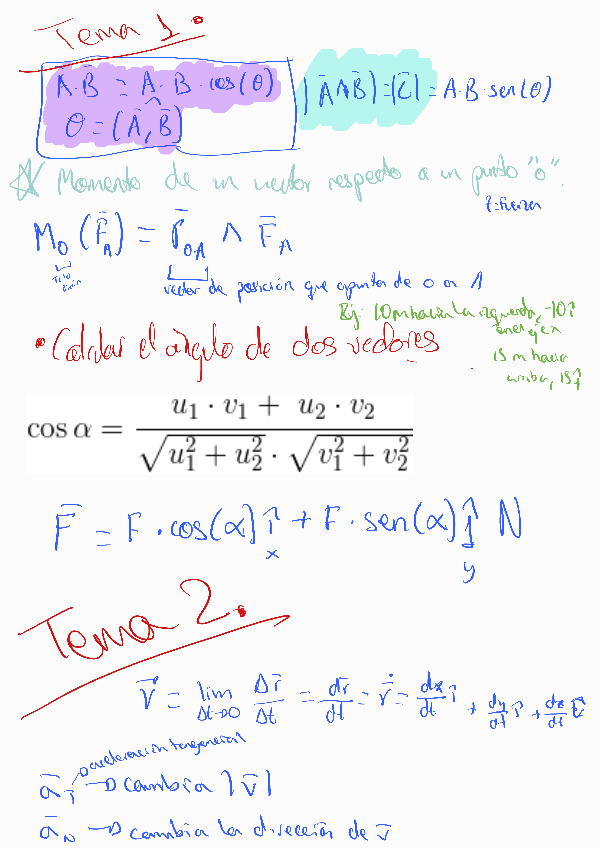 Tema 1.
A̅·B̅ = A·B·cos(θ)
θ = (A̅,^B̅)
|A̅∧B̅| = |C̅| = A·B·sen(θ)
☆ Momento de un vector respecto a un punto "o".
F: fuerza
M₀ (F̅_A) = r̅_OA ∧ F̅_A
vector de posición que apunta de o a A
Ej: 10m hacia la izquierda, -10î
15 m hacia
arriba, 15ĵ
• Calcular el ángulo de dos vectores
cos α = (u₁ · v₁ + u₂ · v₂) / (√(u₁² + u₂²) · √(v₁² + v₂²))
F̅ = F·cos(α) î + F·sen(α) ĵ N
x y
Tema 2.
v⃗ = lim Δt→0 Δr̅/Δt = dr̅/dt = ṙ = dx/dt î + dy/dt ĵ + dz/dt k̂
aceleración tangencial
a̅_T → cambia |v̅|
a̅_N → cambia la dirección de v̅